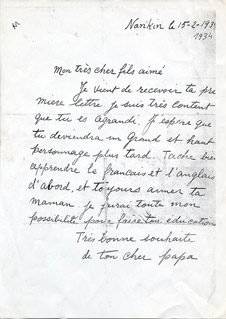 Nankin le 15-2-193
1934
Mon très cher fils aimé
Je vient de recevoir ta pre
miere lettre je suis très content
que tu es agrandi. J'espere que
tu deviendra un grand et haut
personnage plus tard. Tache bien
apprendre le francais et l'anglais
d'abord, et toujours aimer ta
maman je ferai toute mon
possibilité pour faire ton education
Très bonne souhaite
de ton cher papa